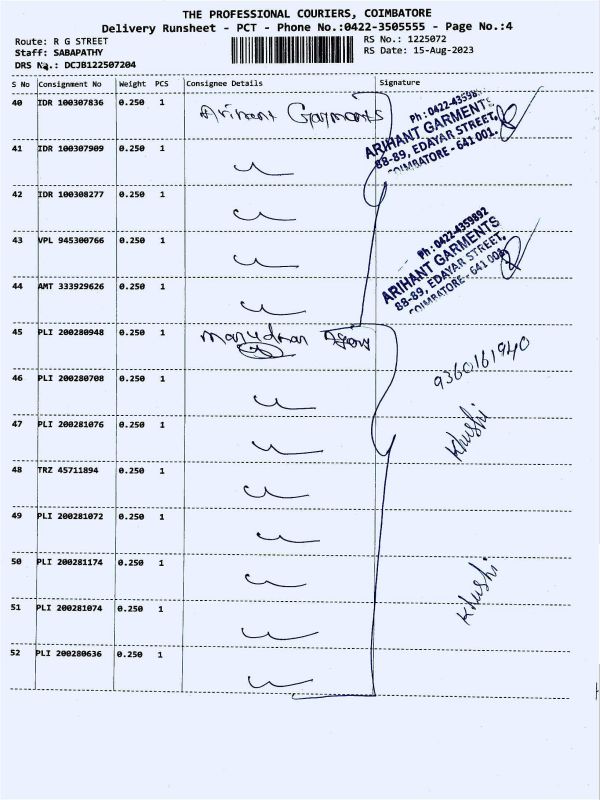 THE PROFESSIONAL COURIERS, COIMBATORE
Delivery Runsheet - PCT - Phone No.:0422-3505555 - Page No.:4
Route: R G STREET
RS No.: 1225072
Staff: SABAPATHY
RS Date: 15-Aug-2023
DRS No.: DCJB122507204
S No Consignment No Weight PCS Consignee Details Signature
40 IDR 100307836 0.250 1 Arihant Garments
Ph : 0422-435989
ARIHANT GARMENTS
88-89, EDAYAR STREET,
COIMBATORE - 641 001.
41 IDR 100307909 0.250 1
42 IDR 100308277 0.250 1
43 VPL 945300766 0.250 1
Ph : 0422-4359892
ARIHANT GARMENTS
88-89, EDAYAR STREET,
COIMBATORE - 641 001.
44 AMT 333929626 0.250 1
45 PLI 200280948 0.250 1
9360161940
46 PLI 200280708 0.250 1
47 PLI 200281076 0.250 1 Khushi
48 TRZ 45711894 0.250 1
49 PLI 200281072 0.250 1
50 PLI 200281174 0.250 1 Khushi
51 PLI 200281074 0.250 1
52 PLI 200280636 0.250 1